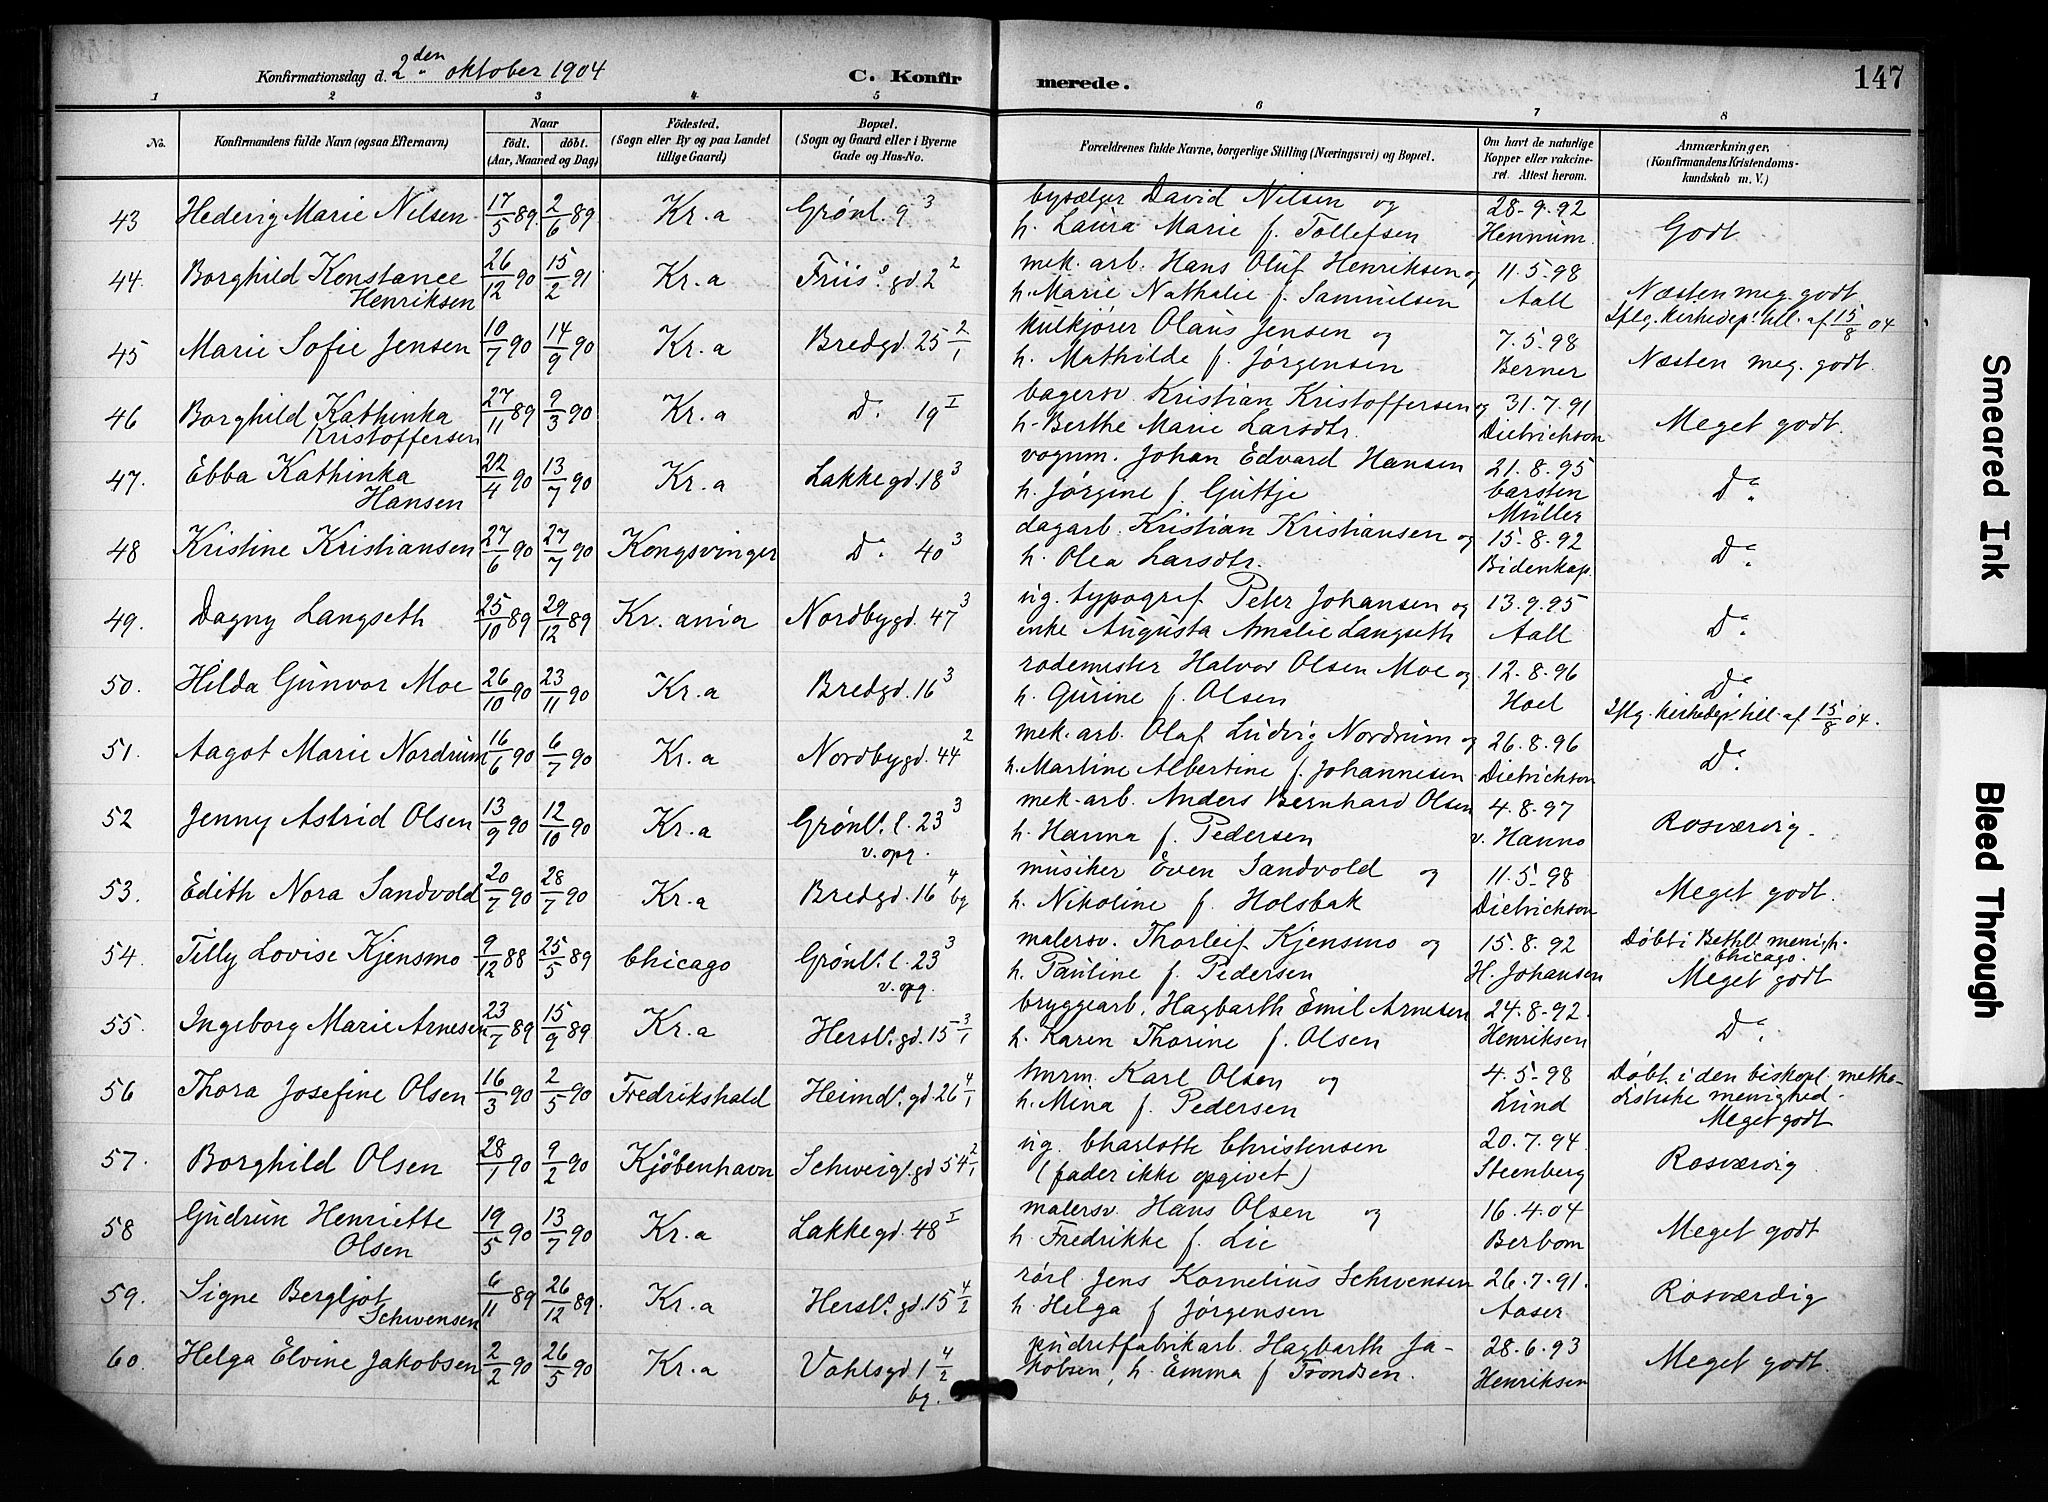 Konfirmationsdag d. 2den oktober 1904
C. Konfir merede. 147
1 2 3 4 5 6 7 8
No. Konfirmandens fulde Navn (ogsaa Efternavn) Naar födt. döbt. (Aar, Maaned og Dag) Födested. (Sogn eller By og paa Landet tillige Gaard) Bopæl. (Sogn og Gaard eller i Byerne Gade og Hus-No. Forældrenes fulde Navne, borgerlige Stilling (Næringsvei) og Bopæl. Om havt de naturlige Kopper eller vakcineret. Attest herom. Anmærkninger. (Konfirmandens Kristendomskundskab m. V.)
43 Hedevig Marie Nilsen 17/5 89. 2/6 89 Kr.a Grønl. 9 3 bysælger David Nilsen og
h. Laura Marie f. Tollefsen 28-9-92 Hennum. Godt
44. Borghild Konstance Henriksen 26/12 90 15/2 91 Kr.a Friis's gd. 2 2 mek. arb. Hans Oluf Henriksen og
h. Marie Nathalie f. Samuelsen 11.5-98 Aall Næsten meg. godt
Iflg. kirkedep. till. af 15/8 04
45. Marie Sofie Jensen 10/7 90 14/9 90 Kr.a Bredgd. 25 2/1 kulkjører Olaus Jensen og
h. Mathilde f. Jørgensen 7.5-98 Berner Næsten meg. godt.
46 Borghild Kathinka Kristoffersen 27/11 89 9/3 90. Kr.a Do. 19 I bagersv. Kristian Kristoffersen og
h. Berthe Marie Larsdtr. 31.7.91 Dietrichson Meget godt.
47. Ebba Kathinka Hansen 22/4 90 13/7 90 Kr.a Lakkegd. 18 3 vognm. Johan Edvard Hansen
h. Jørgine f. Guttje 21.8.95 Carsten Müller Do.
48 Kristine Kristiansen 27/6 90 27/7 90 Kongsvinger Do. 40 3 dagarb. Kristian Kristiansen og
h. Olea Larsdtr. 15.8.92 Bidenkap. Do.
49. Dagny Langseth 25/10 89 29/12 89 Kr.ania Nordbygd. 47 3 ug. typograf Peter Johansen og
enke Augusta Amalie Langseth 13.9.95 Aall Do.
50. Hilda Gunvor Moe 26/10 90 23/11 90 Kr.a Bredgd. 16 3 rodemester Halvor Olsen Moe og
h. Gurine f. Olsen 12.8.96 Hoel Do.
Iflg. kirkedep. till. af 15/8 04.
51. Aagot Marie Nordrum 16/6 90 6/7 90 Kr.a Nordbygd. 44 2 mek. arb. Olaf Ludvig Nordrum og
h. Martine Albertine f. Johannesen 26.8.96 Dietrichson Do.
52 Jenny Astrid Olsen 13/9 90 12/10 90 Kr.a Grønl. l. 23 3 v. opg. mek. arb. Anders Bernhard Olsen
h. Hanna f. Pedersen 4.8.97 v. Hanno Rosværdig.
53. Edith Nora Sandvold 20/7 90 28/7 90 Kr.a Bredgd. 16 4 bg musiker Even Sandvold og
h. Nikoline f. Holsbak 11.5-98 Dietrichson Meget godt.
54. Tilly Lovise Kjensmo 9/12 88 25/5 89 Chicago Grønl. l. 23 3 v. opg. malersv. Thorleif Kjensmo og
h. Pauline f. Pedersen 15.8.92 H. Johansen Døbt i Bethl. menigh. Chicago.
Meget godt
55. Ingeborg Marie Arnesen 23/7 89 15/9 89 Kr.a Hersl. gd. 15 3/1 bryggearb. Hagbarth Emil Arnesen
h. Karen Thorine f. Olsen 24.8-92. Henriksen Do.
56 Thora Josefine Olsen 16/3 90 2/5 90 Fredrikshald Heimd. gd. 26 4/1 murm. Karl Olsen og
h. Mina f. Pedersen 4.5-98 Lund Døbt i den biskopl. methodistiske menighed.
Meget godt
57. Borghild Olsen 28/1 90 9/2 90 Kjøbenhavn Schweig. gd 54 2/1 ug. Charlotte Christensen
(fader ikke opgivet) 20.7.94 Steenberg Rosværdig
58 Gudrun Henriette Olsen 19/5 90 13/7 90 Kr.a Lakkegd. 48 I malersv. Hans Olsen og
h. Fredrikke f. Lie 16.4.04 Berbom Meget godt
59. Signe Bergljot Schwensen 6/11 89 26/12 89. Kr.a Hersl. gd. 15 4/2 rørl. Jens Kornelius Schwensen
h. Helga f Jørgensen 26.7.91. Aaser Rosværdig
60. Helga Elvine Jakobsen 2/2 90 26/5 90 Kr.a Vahlsgd. 1 4/2 bg. pudretfabrikarb. Hagbarth Jakobsen, h. Emma f Trondsen. 28.6.93 Henriksen Meget godt.
Smeared Ink
Bleed Through